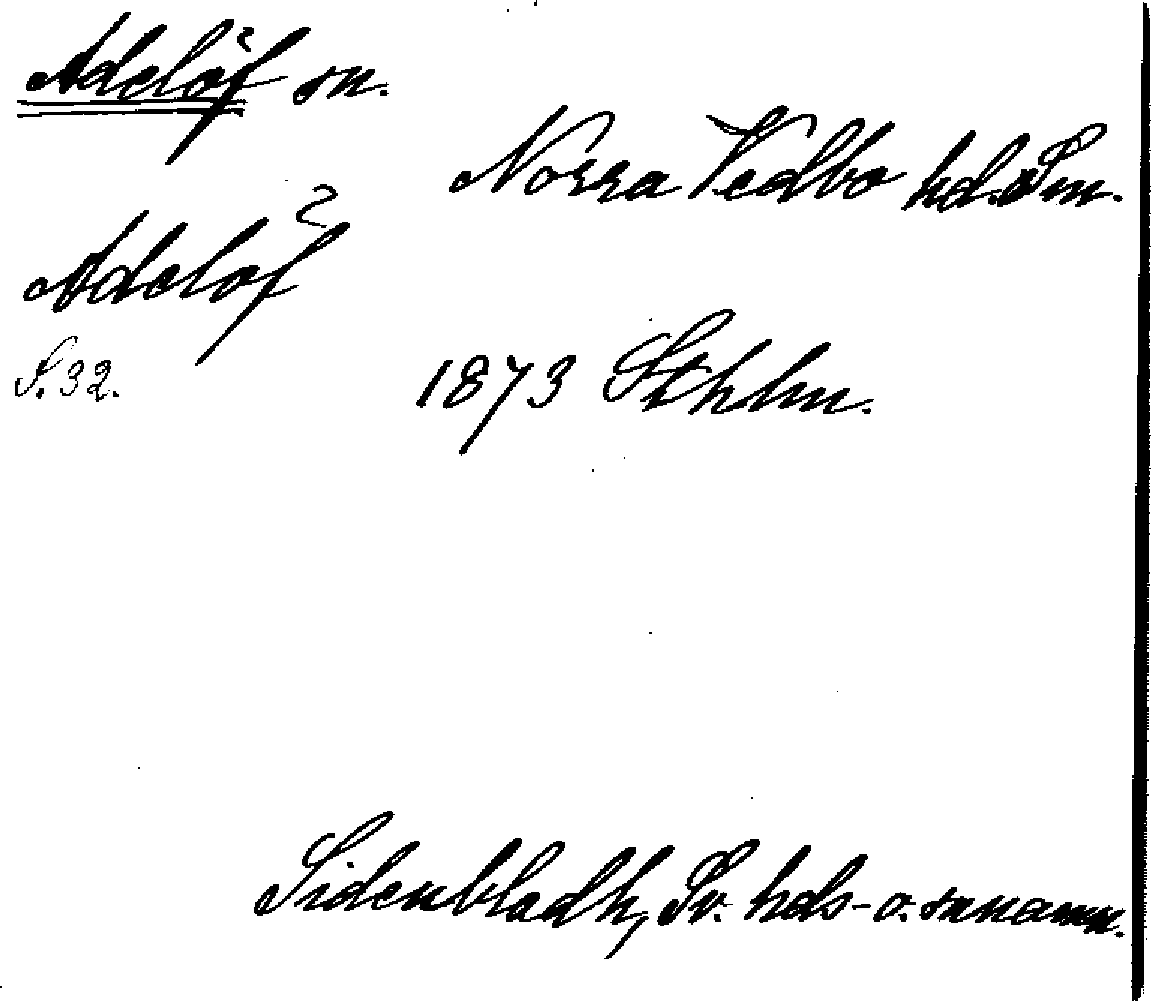 Adelöf sn.
Norra Vedbo hd. Sm.
Adelöf
S. 32.
1873 Sthlm.
Sidenbladh, Sv. hds- o. snnamn.